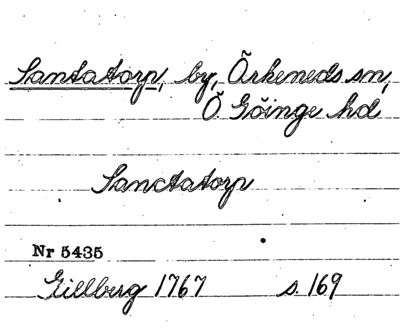 Santatorp, by, Örkeneds sn,
Ö. Göinge hd
Sanctatorp
Nr 5435
Gillberg 1767 s. 169